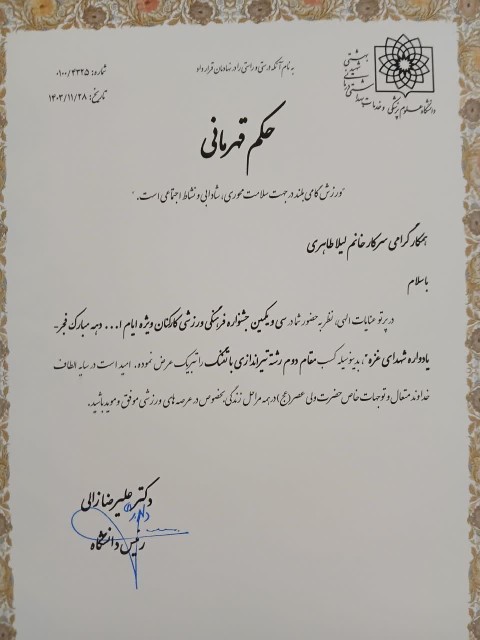 به نام آنکه درستی و راستی را در نهادمان قرار داد
شماره: ۰۱۰۰/۴۳۲۵
تاریخ: ۱۴۰۳/۱۱/۲۸
دانشگاه علوم پزشکی و خدمات بهداشتی درمانی شهید بهشتی
حکم قهرمانی
"ورزش گامی بلند در جهت سلامت محوری، شادابی و نشاط اجتماعی است."
همکار گرامی سرکار خانم لیلا طاهری
باسلام
در پرتو عنایات الهی، نظر به حضور شما در سی و یکمین جشنواره فرهنگی ورزشی کارکنان ویژه ایام ا... دهه مبارک فجر-
یادواره شهدای غزه، بدینوسیله کسب مقام دوم رشته تیراندازی با تفنگ را تبریک عرض نموده. امید است در سایه الطاف
خداوند متعال و توجهات خاص حضرت ولی عصر(عج) در همه مراحل زندگی بخصوص در عرصه های ورزشی موفق و موید باشید.
دکتر علیرضا زالی
رئیس دانشگاه